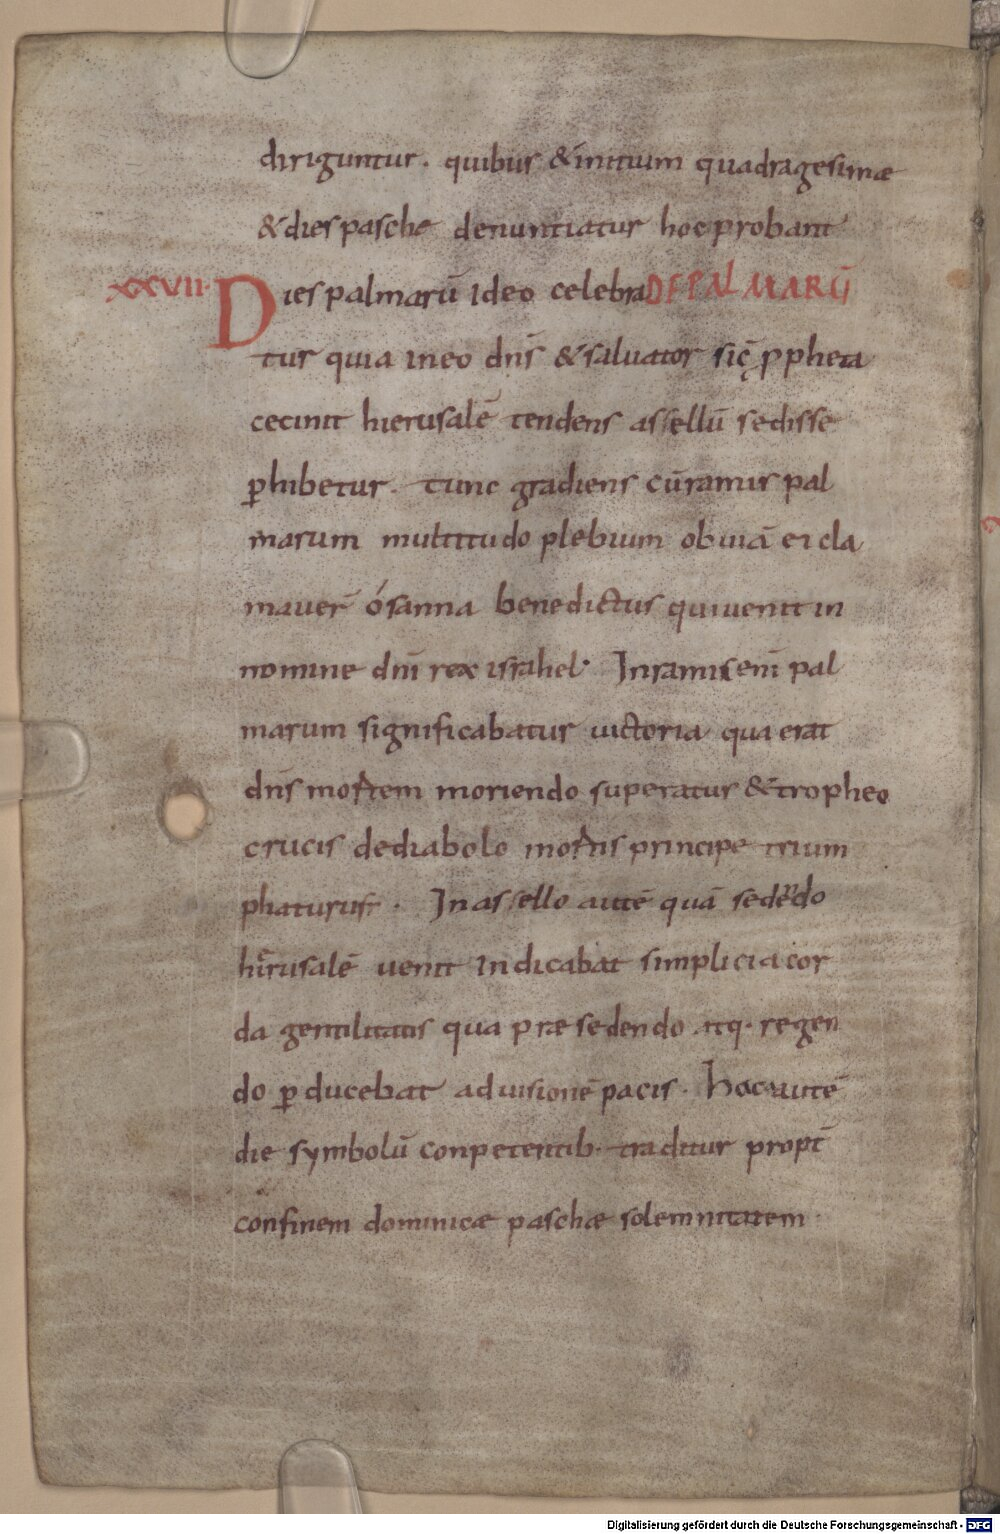 diriguntur. quibus & initium quadragesimæ
& dies pasche denuntiatur hoc probant
XXVII. Dies palmarū ideo celebra DE PALMARŪ
tur quia in eo dn̄s & saluator sic̄ ꝓpheta
cecinit hierusalē tendens assellū sedisse
ꝑhibetur. tunc gradiens cū ramis pal
marum multitudo plebium obuiā ei cla
mauer̄ ósanna benedictus qui uenit in
nomine dn̄i rex israhel. In ramis enī pal
marum significabatur uictoria qua erat
dn̄s mortem moriendo superaturus & tropheo
crucis de diabolo mortis principe trium
phaturus. In assello autē quā sedendo
hirusalē uenit indicabat simplicia cor
da gentilitatis qua præsedendo atq. regen
do ꝑducebat ad uisionē pacis. Hac autē
die symbolū conpetentib. traditur propt̄
confinem dominicæ paschæ solemnitatem.
Digitalisierung gefördert durch die Deutsche Forschungsgemeinschaft - DFG